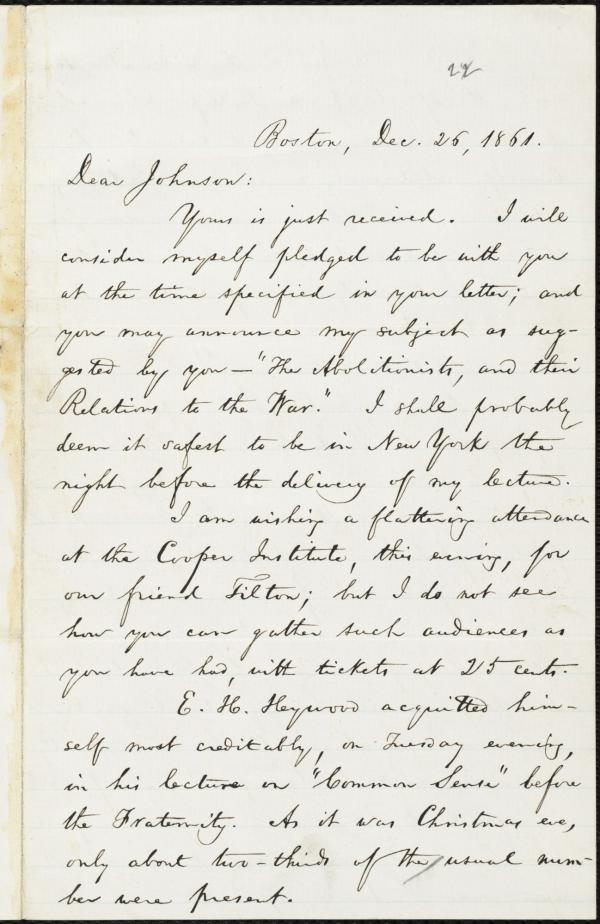 22
Boston, Dec. 26, 1861.
Dear Johnson:
Yours is just received. I will
consider myself pledged to be with you
at the time specified in your letter; and
you may announce my subject as sug-
gested by you — "The Abolitionists, and their
Relations to the War." I shall probably
deem it safest to be in New York the
night before the delivery of my lecture.
I am wishing a flattering attendance
at the Cooper Institute, this evening, for
our friend Tilton; but I do not see
how you can gather such audiences as
you have had, with tickets at 25 cents.
E. H. Heywood acquitted him-
self most creditably, on Tuesday evening,
in his lecture on "Common Sense" before
the Fraternity. As it was Christmas eve,
only about two-thirds of the usual num-
ber were present.